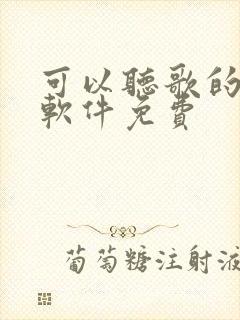 可以聽歌的
軟件免費
葡萄糖注射液